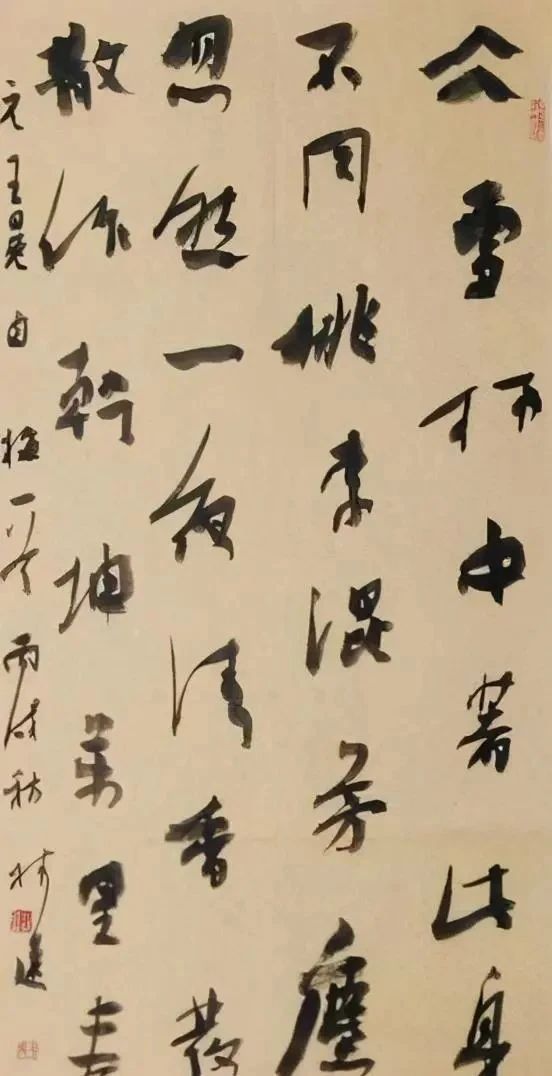 仌雪林中著此身
不同桃李混芳塵
忽然一夜清香發
散作乾坤萬里春
元王冕白梅一首丙戌秋